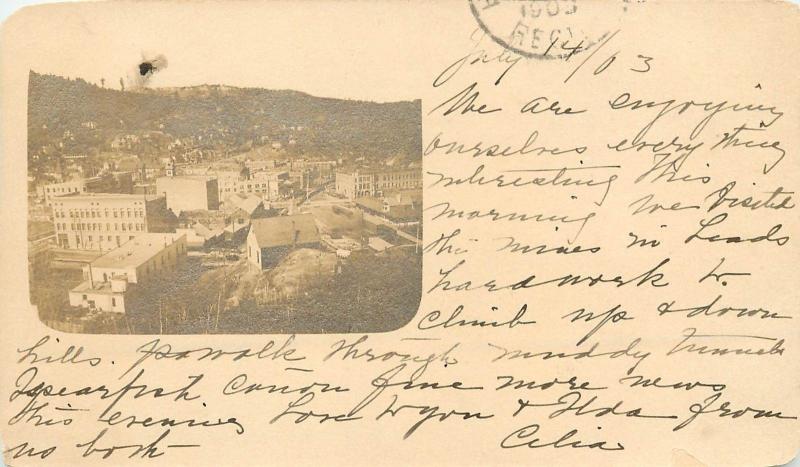 1903
REC'D
July 14/03
We are enjoying
ourselves every thing
interesting This
morning we Visited
the mines in Leads
hard work to
climb up & down
hills. walk through muddy tunnels
Spearfish Cañon fine more news
this evening Love to you & Ilda from
us both Celia